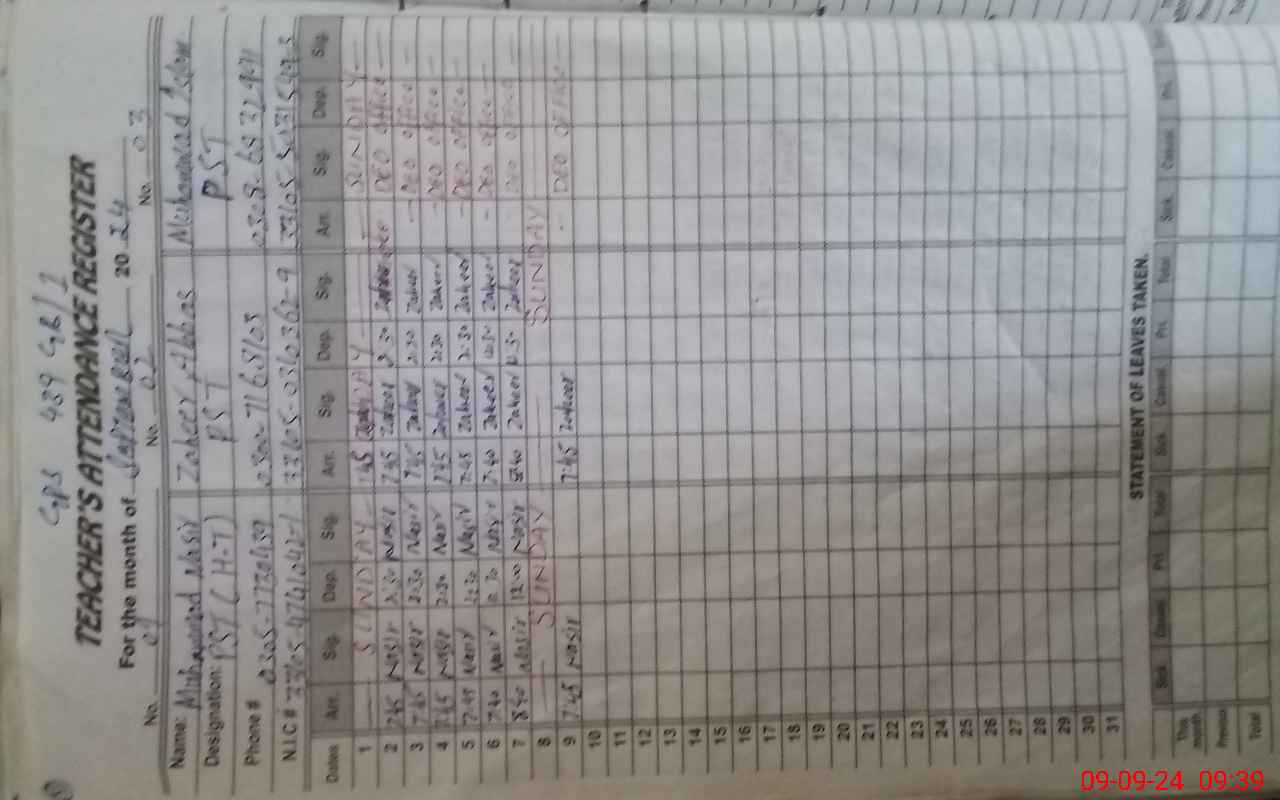 GPS 439 GB/2
TEACHER'S ATTENDANCE REGISTER
For the month of September 2024
No. 01 No. 02 No. 03
Name: Muhammad Nasir Zaheer Abbas Muhammad Islam
Designation: PST (H.T) PST PST
Phone # 0305-7730439 0300-7168103
N.I.C #
Dates Arr. Sig. Dep. Sig. Arr. Sig. Dep. Sig. Arr. Sig. Dep. Sig.
1 SUNDAY SUNDAY
2 7:45 Nasir 2:30 Nasir 7:45 Zaheer 2:30 Zaheer DEO office
3 7:45 Nasir 2:30 Nasir 7:45 Zaheer 2:30 Zaheer DEO office
4 7:45 Nasir 2:30 Nasir 7:45 Zaheer 2:30 Zaheer DEO office
5 7:45 Nasir 2:30 Nasir 7:45 Zaheer 2:30 Zaheer DEO office
6 7:40 Nasir 12:30 Nasir 7:40 Zaheer 12:30 Zaheer DEO office
7 8:40 Nasir 12:00 Nasir 8:40 Zaheer 12:30 Zaheer DEO office
8 SUNDAY SUNDAY
9 7:45 Nasir 7:45 Zaheer DEO OFFICE
10
11
12
13
14
15
16
17
18
19
20
21
22
23
24
25
26
27
28
29
30
31
STATEMENT OF LEAVES TAKEN.
Sick Casual Pri. Total Sick Casual Pri. Total Sick Casual Pri.
This month
Previous
Total
09-09-24 09:39